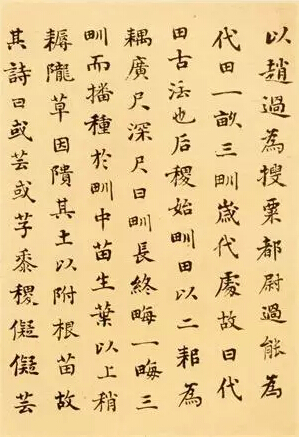 以趙過為搜粟都尉過能為
代田一畝三甽歲代處故曰代
田古法也后稷始甽田以二耜為
耦廣尺深尺曰甽長終畮一畮三
甽而播種於甽中苗生葉以上稍
耨隴草因隤其土以附根苗故
其詩曰或芸或芓黍稷儗儗芸